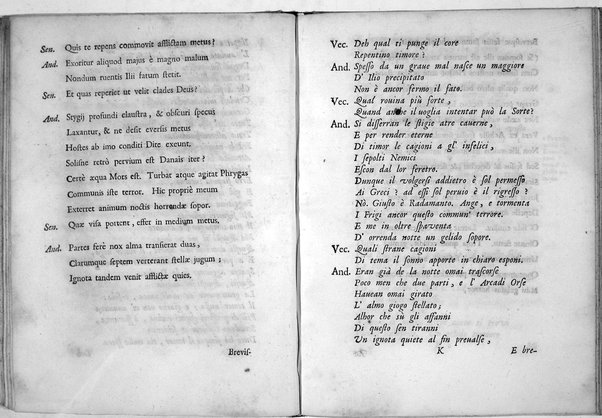 Sen. Quis te repens commovit afflictam metus?
And. Exoritur aliquod majus è magno malum
Nondum ruentis Ilii fatum stetit.
Sen. Et quas reperiet ut velit clades Deus?
And. Stygij profundi claustra, & obscuri specus
Laxantur, & ne desit eversis metus
Hostes ab imo conditi Dite exeunt.
Solisne retrò pervium est Danais iter?
Certè æqua Mors est. Turbat atque agitat Phrygas
Communis iste terror. Hic propriè meum
Exterret animum noctis horrendæ sopor.
Sen. Quæ visa portent, effer in medium metus.
And. Partes ferè nox alma transierat duas,
Clarumque septem verterant stellæ jugum;
Ignota tandem venit afflictæ quies.
Brevis-
Vec. Deh qual ti punge il core
Repentino timore?
And. Spesso da un graue mal nasce un maggiore
D' Ilio precipitato
Non è ancor fermo il fato.
Vec. Qual rouina più forte,
Quand anche il voglia intentar può la Sorte?
And. Si disserran le stigie atre cauerne,
E per render eterne
Di timor le cagioni a gl' infelici,
I sepolti Nemici
Escon dal lor feretro.
Dunque il volgersi addietro è sol permesso
Ai Greci? ad essi sol peruio è il rigresso?
Nò. Giusto è Radamanto. Ange, e tormenta
I Frigi ancor questo commun' terrore.
E me in oltre spauenta
D' orrenda notte un gelido sopore.
Vec. Quali strane cagioni
Di tema il sonno apporte in chiaro esponi.
And. Eran già de la notte omai trascorse
Poco men che due parti, e l' Arcadi Orse
Hauean omai girato
L' almo giogo stellato;
Alhor che sù gli affanni
Di questo sen tiranni
Un ignota quiete al fin preualse,
K E bre-